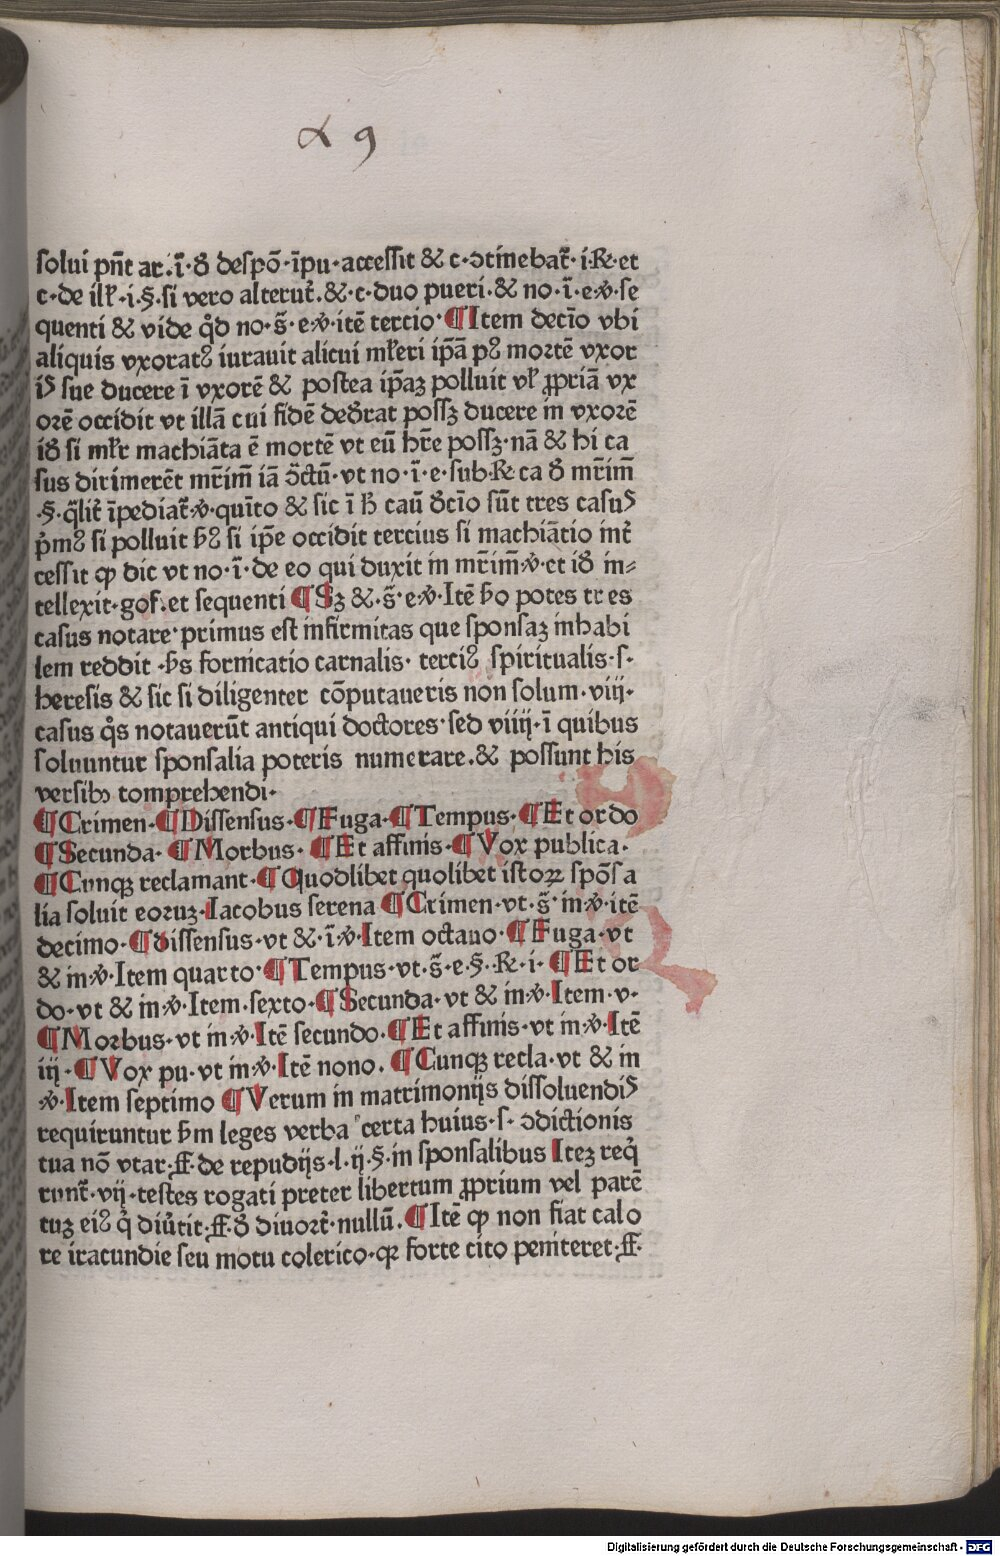 α 9
solui pn̄t ar. ī· ꝺ̄ despō· īpu· accessit & c· ↄtinebat᷑· i· R· et
c· de ill̄· i· §· si vero alterut᷑· &· c· duo pueri· & no· ī· e· v̊· se
quenti & vide qd̊ no· s̄· e· v̊· itē tercio· ¶ Item decīo vbi
aliquis vxoratꝰ iurauit alicui ml̄eri ip̄ā pꝰ mortē vxor
iꝭ sue ducere ī vxorē & postea ip̄aꝫ polluit vl̄ ꝓpriā vx
orē occidit vt illā cui fidē deꝺ̄rat possꝫ ducere in vxorē
iꝺ̄ si ml̄r machiāta ē mortē vt eū hr̄e possꝫ· nā & hi ca
sus dirimerēt mr̄im̄ iā ↄ̄ctū· vt no· ī· e· sub· R ca ꝺ̄ mr̄im̄
·§· q̄lit᷑ īpediat᷑· v̊· quīto & sic ī ħ caū ꝺ̄cīo sūt tres casuꝭ
p̊mꝰ si polluit ƀꝰ si ip̄e occidit tercius si machiātio int᷑
cessit ꝙ dic vt no· ī· de eo qui duxit in mr̄im̄· v̊· et iꝺ̄ in⸗
tellexit· gof. et sequenti ¶ Sꝫ &· s̄· e· v̊· Itē ƀo potes tres
casus notare· primus est infirmitas que sponsaꝫ inhabi
lem reddit · ƀs fornicatio carnalis· terciꝰ spiritualis· s·
heresis & sic si diligenter cōputaueris non solum· viij·
casus q̊s notauerūt antiqui doctores· sed viiij· ī quibus
soluuntur sponsalia poteris numerare. & possunt his
versibꝫ comprehendi·
¶ Crimen· ¶ Dissensus· ¶ Fuga· ¶ Tempus· ¶ Et ordo
¶ Secunda· ¶ Morbus· ¶ Et affinis· ¶ Vox publica·
¶ Cunqꝫ reclamant· ¶ Quodlibet quolibet istoꝝ spōsa
lia soluit eoruꝫ· Iacobus serena ¶ Crimen· vt· s̄· in· v̊· itē
decimo· ¶ dissensus· vt &· ī· v̊· Item octauo· ¶ Fuga· vt
& in· v̊· Item quarto· ¶ Tempus· vt· s̄· e· §· R· i· ¶ Et or
do· vt & in· v̊· Item· sexto· ¶ Secunda· vt & in· v̊· Item· v·
¶ Morbus· vt in· v̊· Itē secundo· ¶ Et affinis· vt in· v̊· Itē
iij· ¶ Vox pu· vt in· v̊· Itē nono. ¶ Cunqꝫ recla· vt & in
· v̊· Item septimo ¶ Verum in matrimonijs dissoluendiꝭ
requiruntur ƀm leges verba certa huius· s· ↄdictionis
tua nō vtar· ff· de repudijs· l· ij· §· in sponsalibus Iteꝫ req̊
runt᷑· vij· testes rogati preter libertum ꝓprium vel parē
tuꝫ eiꝰ q̊ diu᷑tit· ff· ꝺ̄ diuort᷑· nullū. ¶ Itē ꝙ non fiat calo
re iracundie seu motu colerico· qꝛ forte cito peniteret· ff·
Digitalisierung gefördert durch die Deutsche Forschungsgemeinschaft - DFG